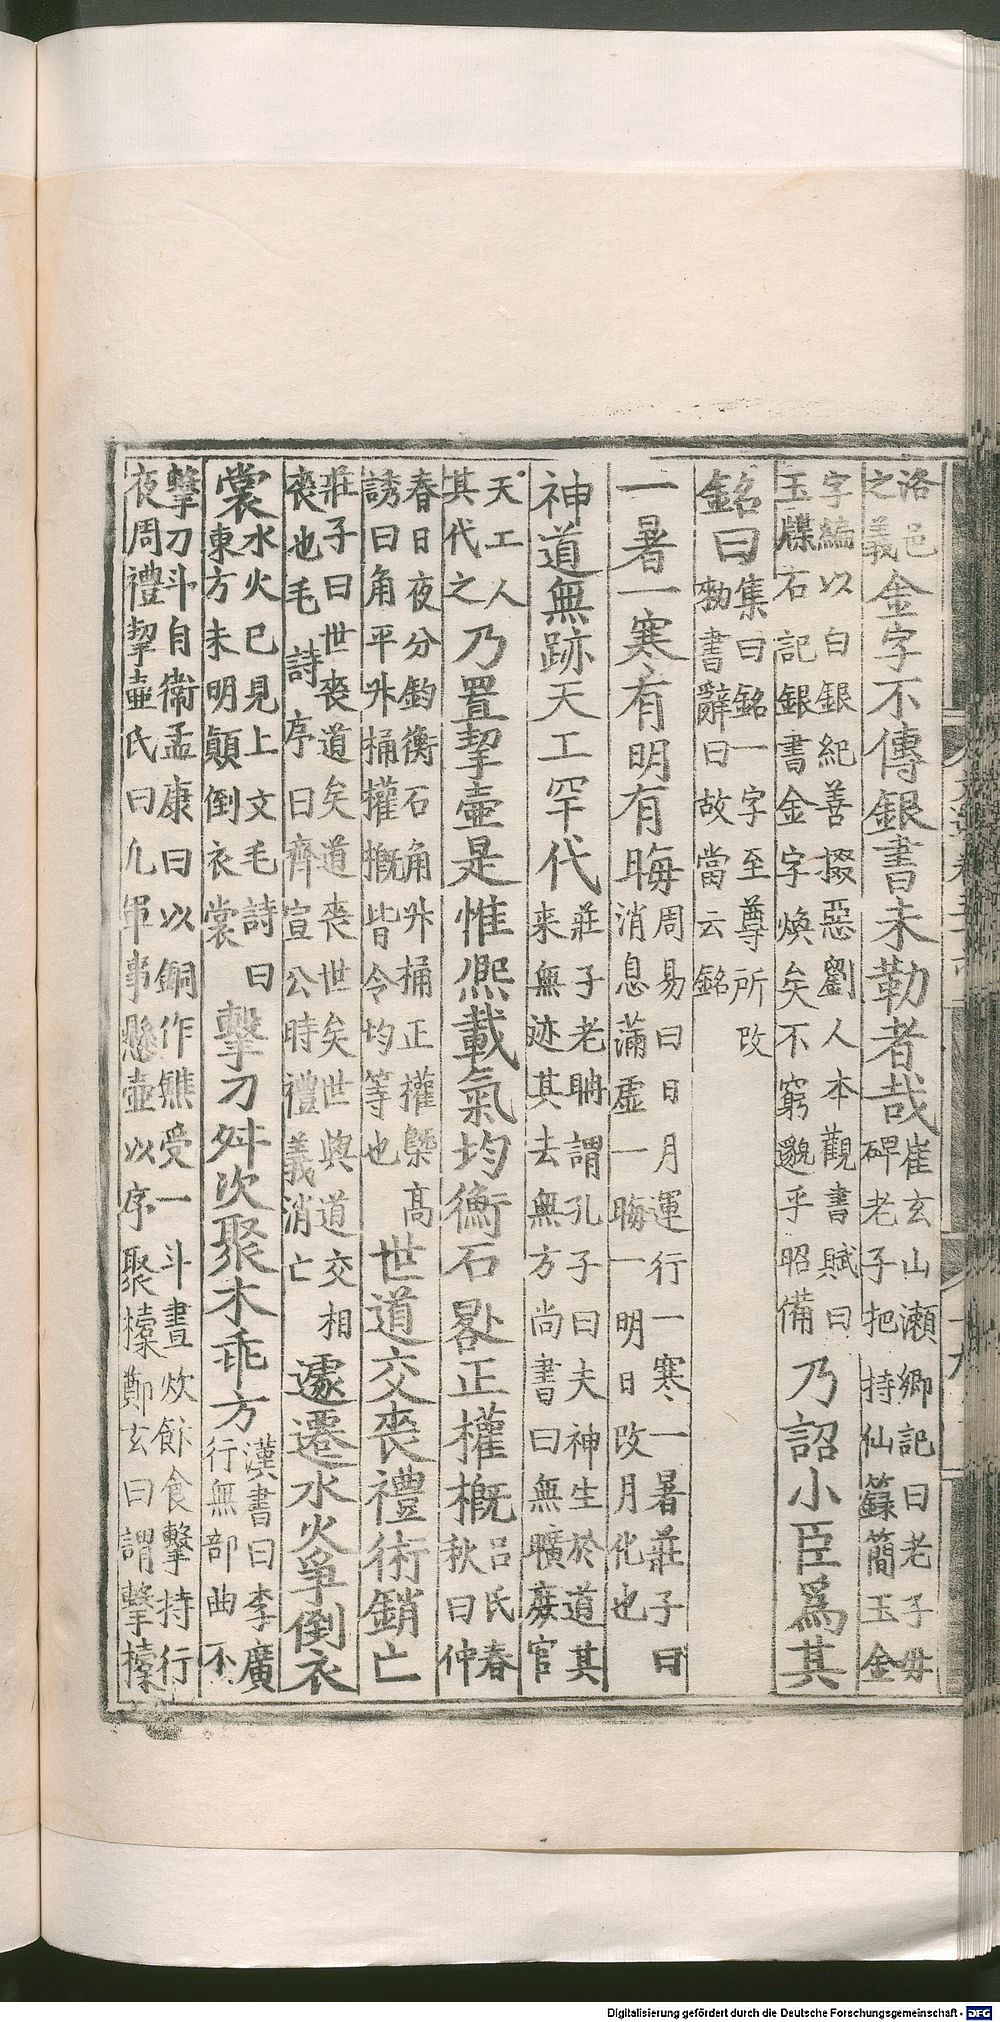 洛邑之義金字不傳銀書未勒者哉崔玄山瀨鄉記曰老子毋碑老子把持仙籙簡玉金
字編以白銀紀善掇惡劉人本觀書賦曰玉牒石記銀書金字煥矣不窮邈乎昭備乃詔小臣爲其
銘曰集曰銘一字至尊所改勑書辭曰故當云銘
一暑一寒有明有晦周易曰日月運行一寒一暑莊子曰消息滿虛一晦一明日改月化也
神道無跡天工罕代莊子老聃謂孔子曰夫神生於道其来無迹其去無方尚書曰無曠庻官
天工人其代之乃置挈壺是惟熈載氣均衡石晷正權概吕氏春秋曰仲
春日夜分鈞衡石角升桶正權槩高誘曰角平升桶權概皆令均等也世道交喪禮術銷亡
莊子曰世喪道矣道喪世矣世與道交相喪也毛詩序曰齊宣公時禮義消亡遽遷水火爭倒衣
裳水火已見上文毛詩曰東方未明顛倒衣裳擊刁舛次聚木乖方漢書曰李廣行無部曲不
擊刀斗自衛孟康曰以銅作鐎受一斗晝炊飰食擊持行夜周禮挈壷氏曰凡軍事懸壷以序聚㯓鄭玄曰謂擊㯓
Digitalisierung gefördert durch die Deutsche Forschungsgemeinschaft - DFG